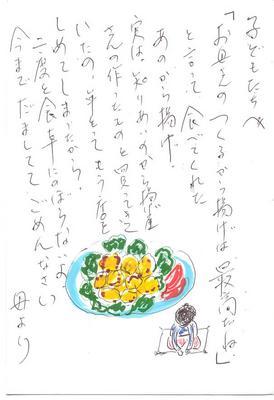 子どもたちへ
「お母さんのつくるから揚げは最高だね！」
と言って食べてくれた
あのから揚げ。
実は、知りあいのから揚げ屋
さんの作ったものを買ってきて
いたの。年とってもう店を
しめてしまったから、
二度と食卓にのぼらないよ
今までだましててごめんなさい
母より